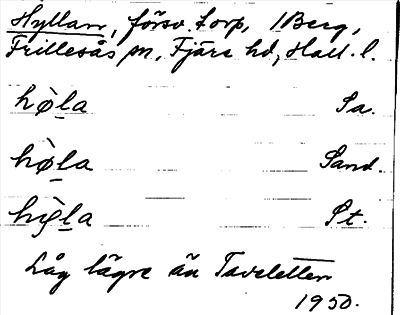 Hyllan, försv. torp, 1 Berg,
Frillesås sn, Fjäre hd, Hall. l.
hø̀la Sa.
hø̀la Sand.
hỳla St.
Låg lägre än Taveletten
1950.